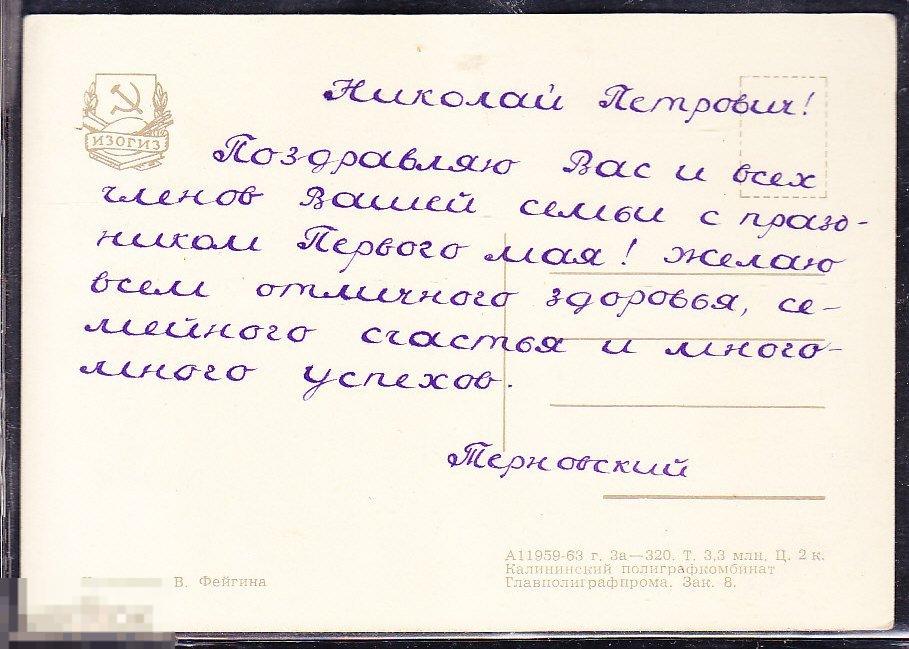 ИЗОГИЗ
Николай Петрович!
Поздравляю Вас и всех
членов Вашей семьи с празд-
ником Первого мая! Желаю
всем отличного здоровья, се-
мейного счастья и много-
много успехов.
Терновский
В. Фейгина
А11959-63 г. За—320. Т. 3,3 млн. Ц. 2 к.
Калининский полиграфкомбинат
Главполиграфпрома. Зак. 8.